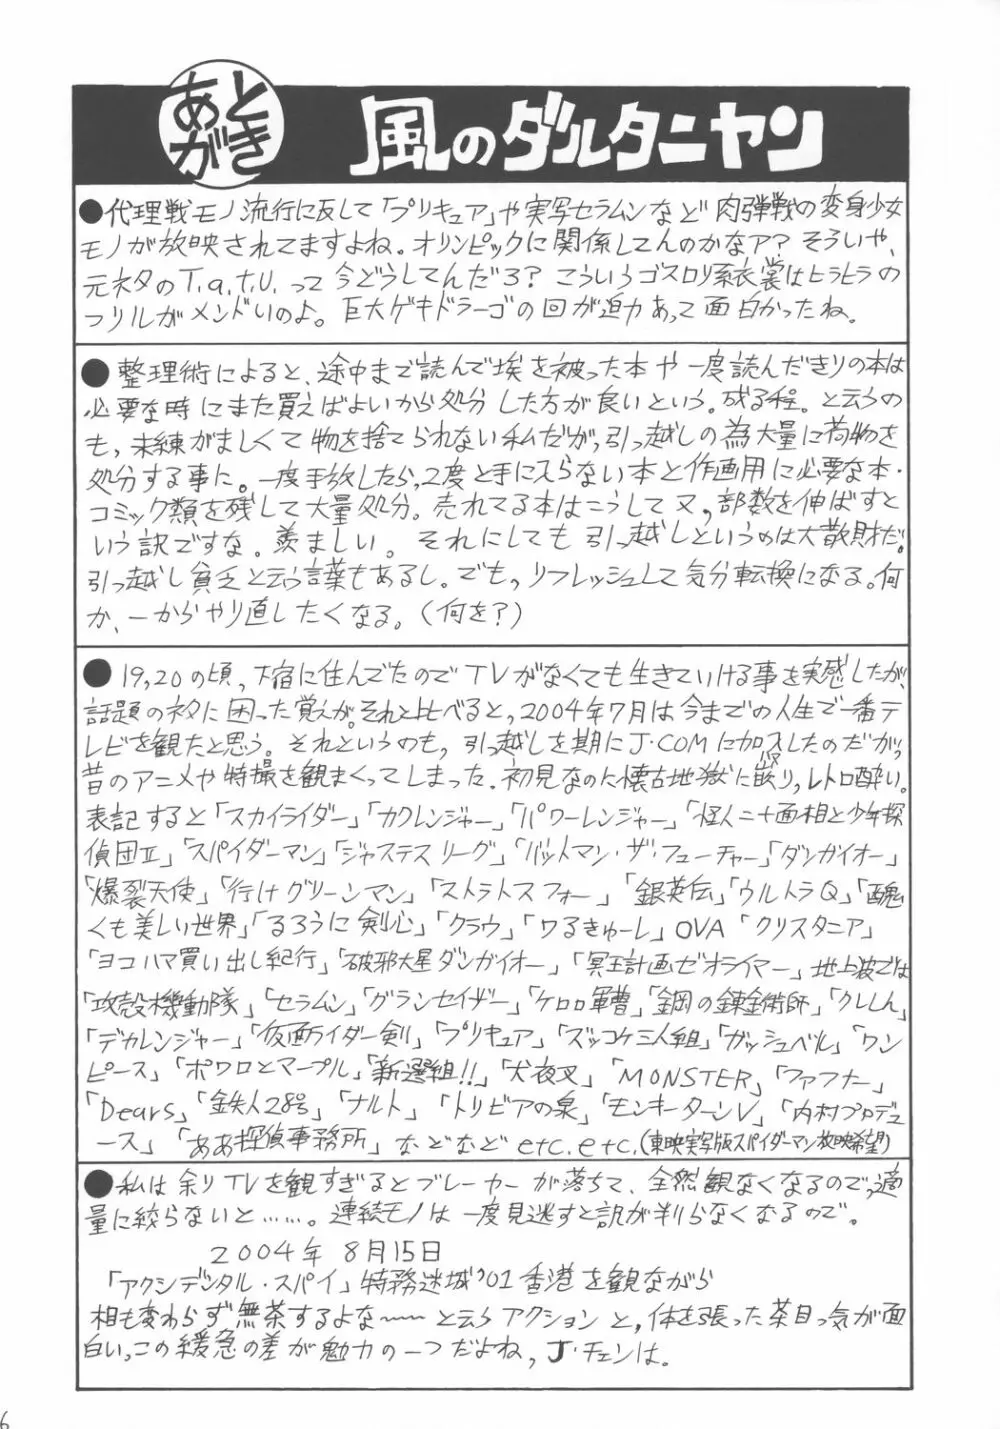 あとがき
風のダルタニヤン
●代理戦モノ流行に反して「プリキュア」や実写セラムンなど肉弾戦の変身少女
モノが放映されてますよね。オリンピックに関係してんのかなア?そういや、
元ネタのT.a.t.U.って今どうしてんだろ?こういうゴスロリ系衣裳はヒラヒラの
フリルがメンドいのよ。巨大ゲキドラーゴの回が迫力あって面白かったね。
●整理術によると、途中まで読んで埃を被った本や一度読んだきりの本は
必要な時にまた買えばよいから処分した方が良いという。成る程。と云うの
も、未練がましくて物を捨てられない私だが、引っ越しの為大量に荷物を
処分する事に。一度手放したら、2度と手に入らない本と作画用に必要な本・
コミック類を残して大量処分。売れてる本はこうして又、部数を伸ばすと
いう訳ですな。羨ましい。それにしても引っ越しというのは大散財だ。
引っ越し貧乏と云う言葉もあるし。でもっリフレッシュして気分転換になる。何
か、一からやり直したくなる。(何を?)
●19,20の頃、下宿に住んでたのでTVがなくても生きていける事を実感したが、
話題のネタに困った覚えが。それと比べると、2004年7月は今までの人生で一番テ
レビを観たと思う。それというのも、引っ越しを期にJ・COMに加入したのだがっ
昔のアニメや特撮を観まくってしまった。初見なのに懐古地獄に嵌り、レトロ酔い。
表記すると「スカイライダー」「カクレンジャー」「パワーレンジャー」「怪人二十面相と少年探
偵団Ⅱ」「スパイダーマン」「ジャステスリーグ」「バットマン・ザ・フューチャー」「ダンガイオー」
「爆裂天使」「行けグリーンマン」「ストラトスフォー」「銀英伝」「ウルトラQ」「醜
くも美しい世界」「るろうに剣心」「クラウ」「ワるきゅーレ」OVA「クリスタニア」
「ヨコハマ買い出し紀行」「破邪大星ダンガイオー」「冥王計画ゼオライマー」地上波では
「攻殻機動隊」「セラムン」「グランセイザー」「ケロロ軍曹」「鋼の錬金術師」「クレしん」
「デカレンジャー」「仮面ライダー剣」「プリキュア」「ズッコケ三人組」「ガッシュベル」「ワン
ピース」「ポワロとマープル」「新選組!!」「犬夜叉」「MONSTER」「ファフナー」
「Dears」「鉄人28号」「ナルト」「トリビアの泉」「モンキーターンV」「内村プロデュ
ース」「ああ探偵事務所」などなどetc.etc.(東映実写版スパイダーマン放映希望)
●私は余りTVを観すぎるとブレーカーが落ちて、全然観なくなるのでっ適
量に絞らないと……。連続モノは一度見逃すと訳が判らなくなるので。
2004年8月15日
「アクシデンタル・スパイ」特務迷城'01香港を観ながら
相も変わらず無茶するよな~~と云うアクションと、体を張った茶目っ気が面
白いっこの緩急の差が魅力の一つだよね,J・チェンは。
6